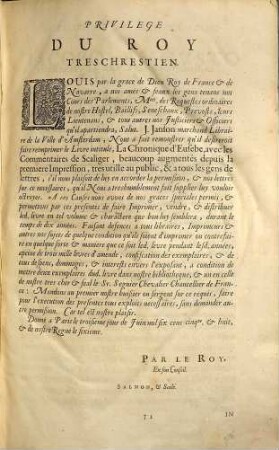 PRIVILEGE
DU ROY
TRESCHRESTIEN.
LOUIS par la grace de Dieu Roy de France & de
Navarre, a nos amez & feaux les gens tenans nos
Cours des Parlements, Mes. des Requestes ordinaires
de nostre Hostel, Baillifs, Seneschaux, Prevosts, leurs
Lieutenans, & tous autres nos Justiciers & Officiers
qu'il appartiendra, Salut. J. Janson marchand Librai-
re de la Ville d'Amsterdam, Nous a fait remonstrer qu'il desireroit
faire reimprimer le Livre intitulé, La Chronique d'Eusebe, avec les
Commentaires de Scaliger, beaucoup augmentés depuis la
premiere Impression, tres utille au public, & à tous les gens de
lettres, s'il nous plaisoit de luy en accorder la permission, & nos lettres
sur ce necessaires, qu'il Nous a treshumblement fait supplier luy vouloir
octroyer. A ces Causes nous avons de nos graces speciales permis, &
permettons par ces presentes de faire Imprimer, vendre, & distribuer
led. livre en tel volume & charactere que bon luy semblera, durant le
temps de dix années. Faisant defences à tous libraires, Imprimeurs &
autres nos sujets de quelque condition qu'ils soient d'imprimer ou contrefaire
en quelque sorte & maniere que ce soit led. livre pendant led. années,
apeine de trois mille livres d'amende, confiscation des exemplaires, & de
tous despens, dommages, & interests envers l'exposant, a condition de
mettre deux exemplaires dud. livre dans nostre bibliotheque, & un en celle
de nostre tres cher & feal le Sr. Seguier Chevalier Chancellier de Fran-
ce: Mandons au premier nostre huissier ou sergent sur ce requis, faire
pour l'execution des presentes tous exploits necessaires, sans demander au-
tre permission. Car tel est nostre plaisir.
Donné a Paris le troisieme jour de Juin mil six cens cinqte. & huit,
& de nostre Regne le sixieme.
PAR LE ROY,
En son Conseil.
SALMON, & Seelé.
IN